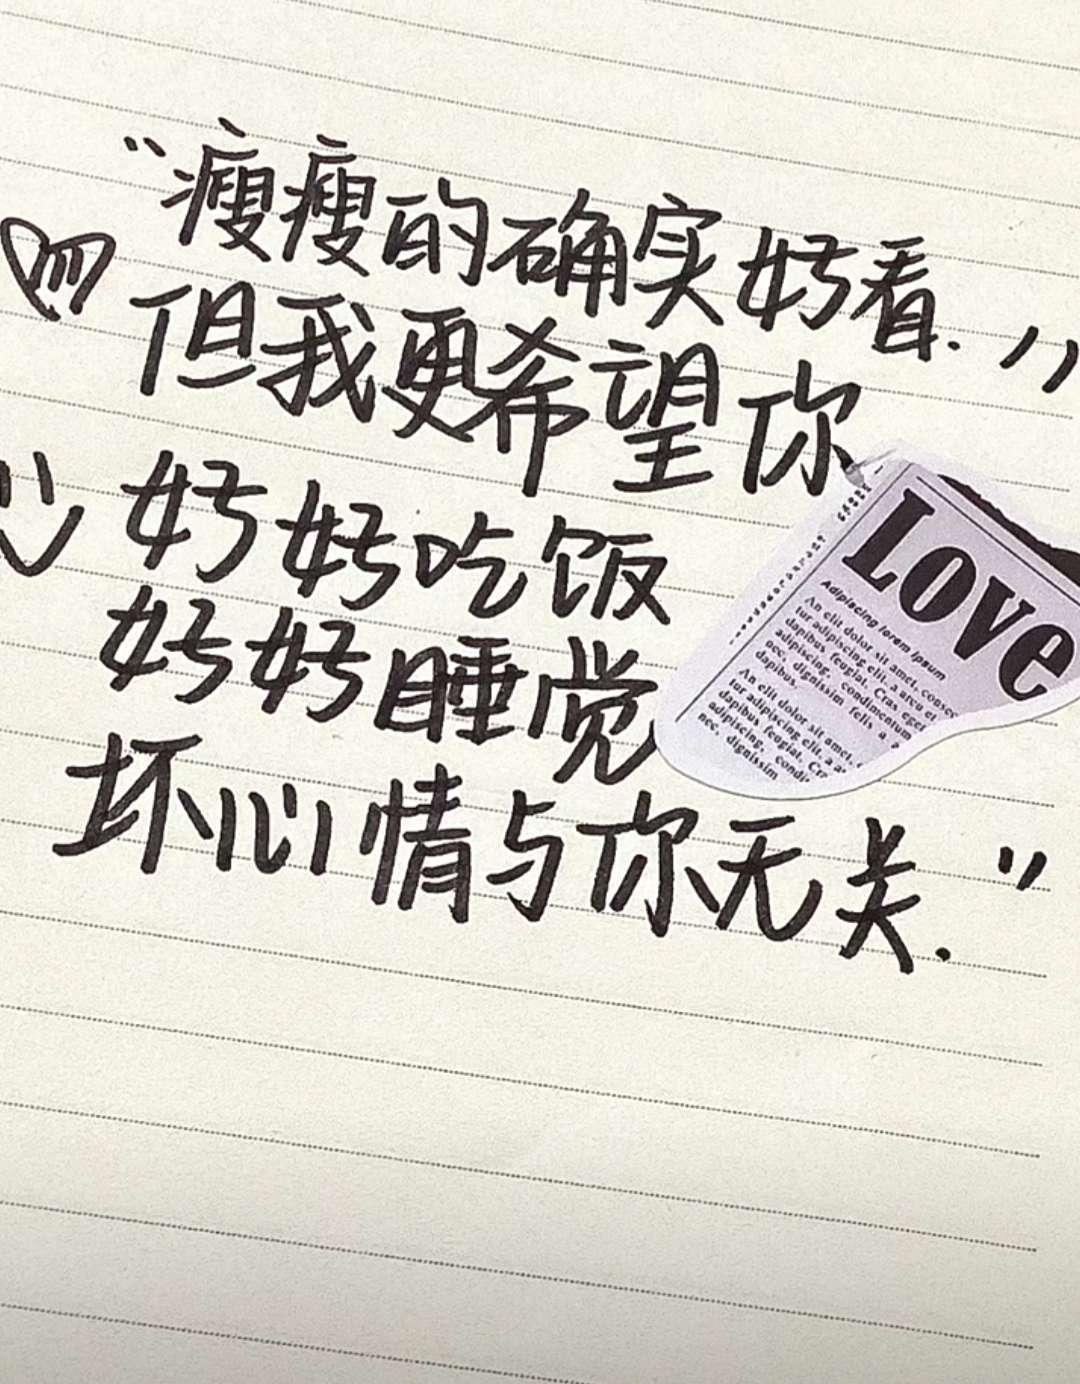 “瘦瘦的确实好看.”
但我更希望你
好好吃饭
好好睡觉
坏心情与你无关.”
LOVE
Adipiscing lorem ipsum
An elit dolor sit amet, consec
tur adipiscing elit, a arcu et
dapibus feugiat. Cras eget
adipiscing, condimentum
nec, dignissim felis a
dapibus.
An elit dolor sit amet,
tur adipiscing elit, a a
dapibus feugiat. Cra
adipiscing, condi
nec, dignissim